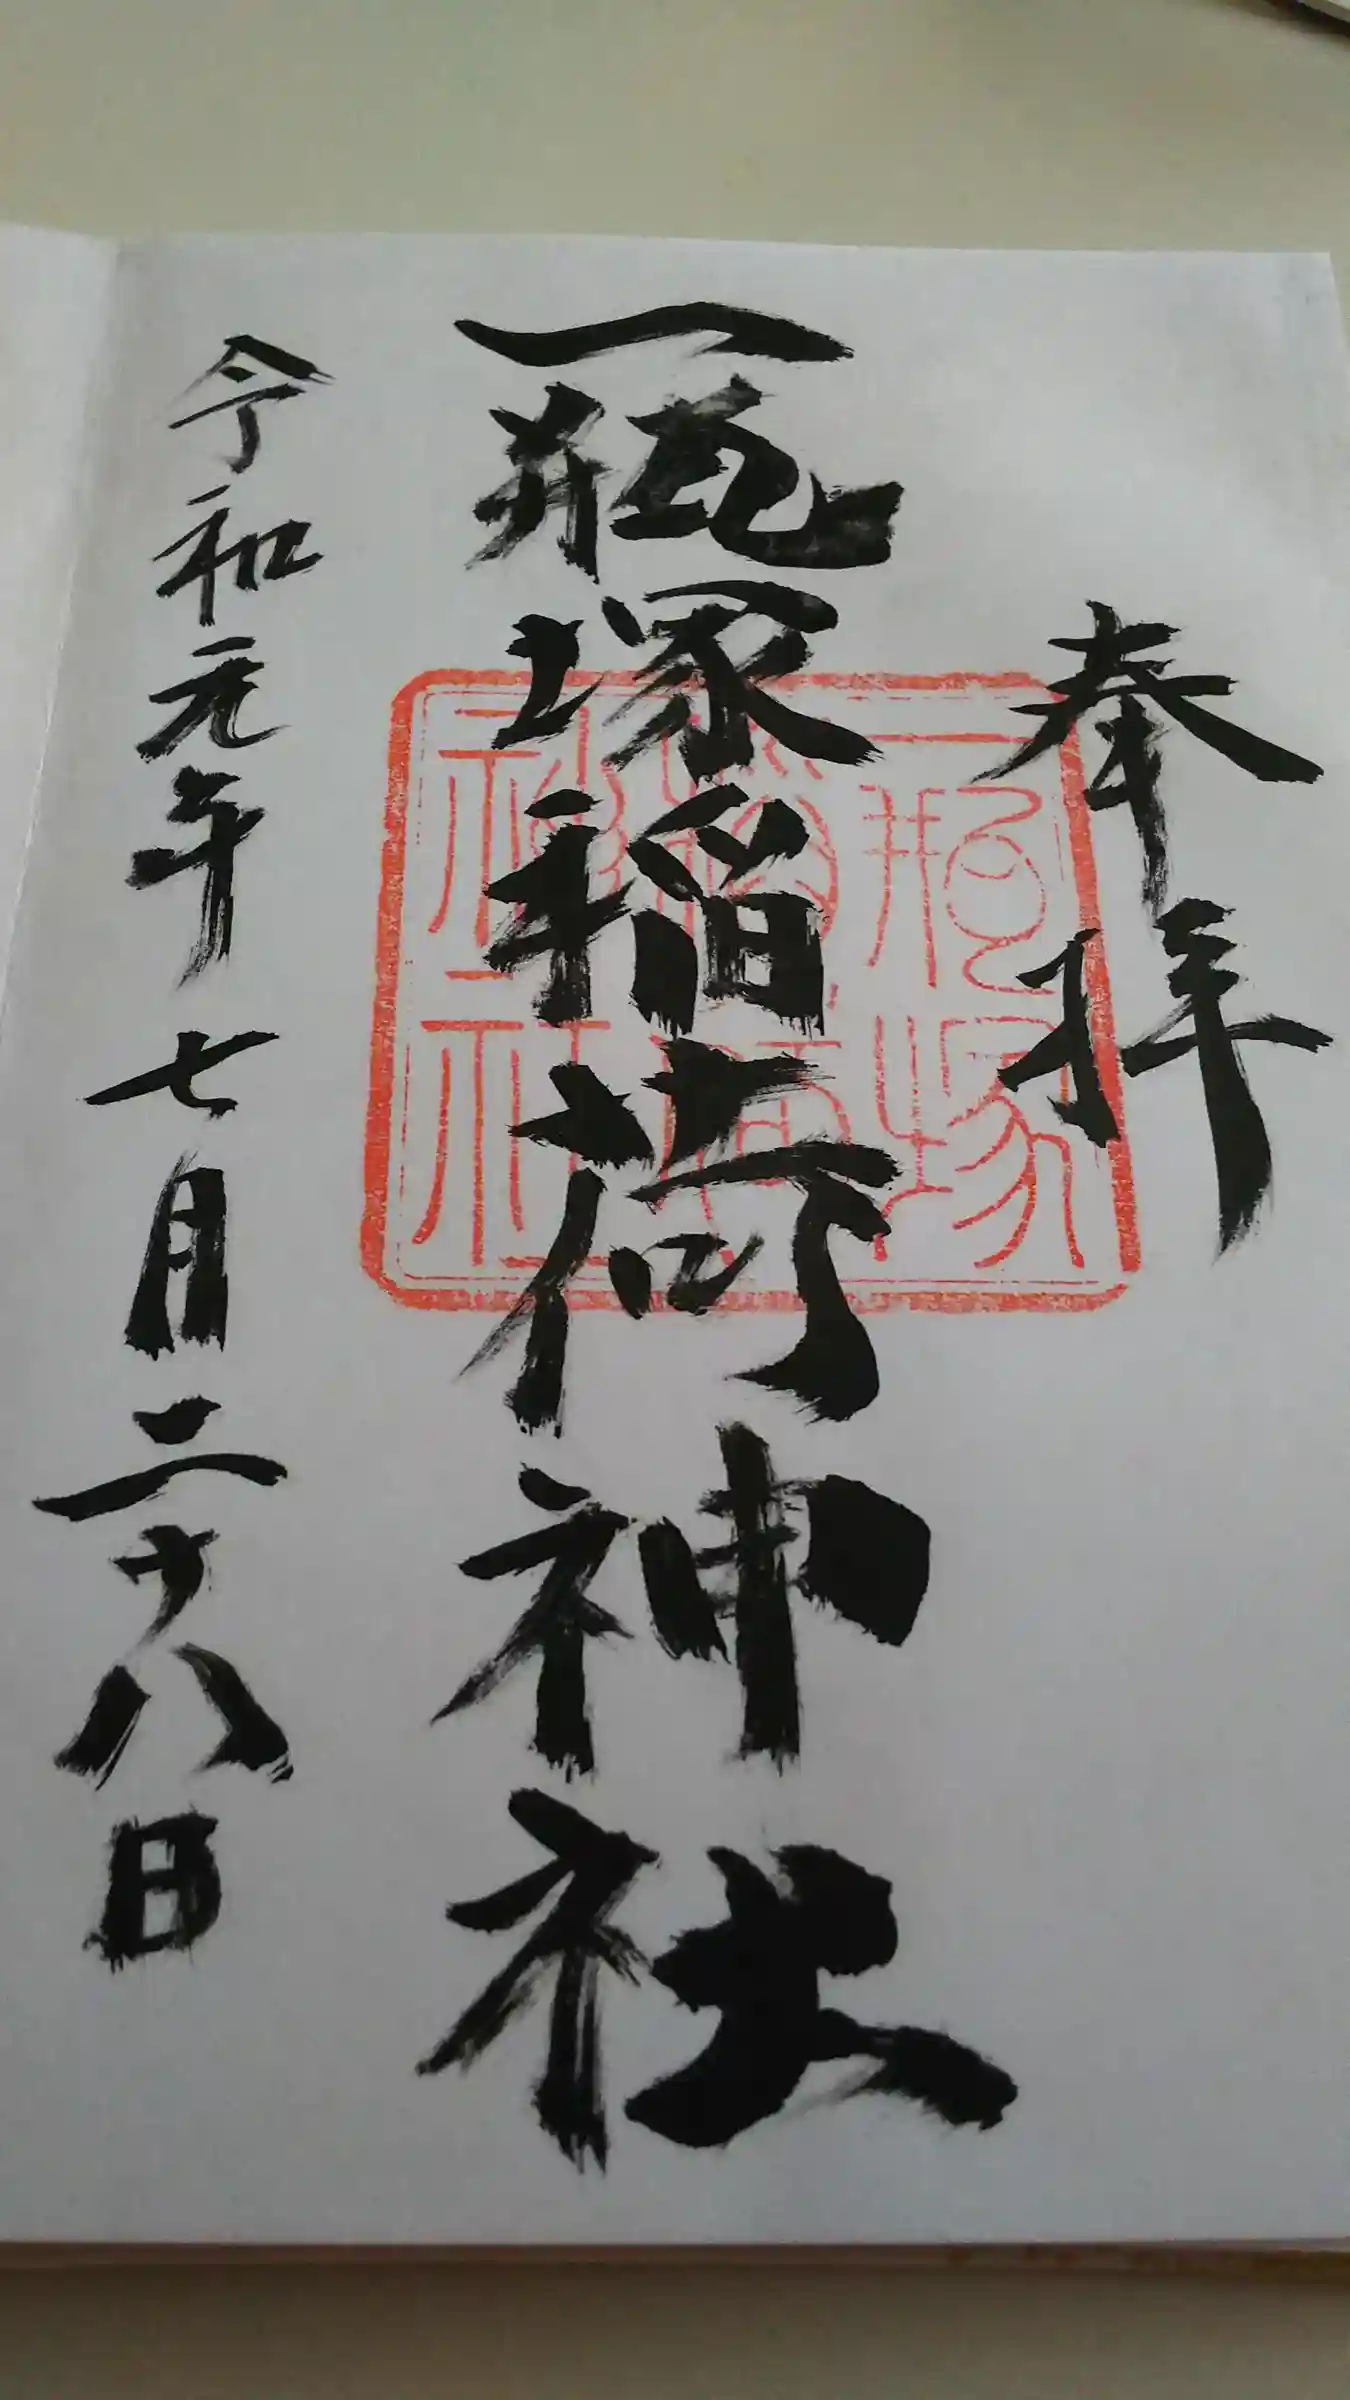 奉拝
一瓶塚稲荷神社
令和元年七月二十八日
一瓶塚
稲荷神社